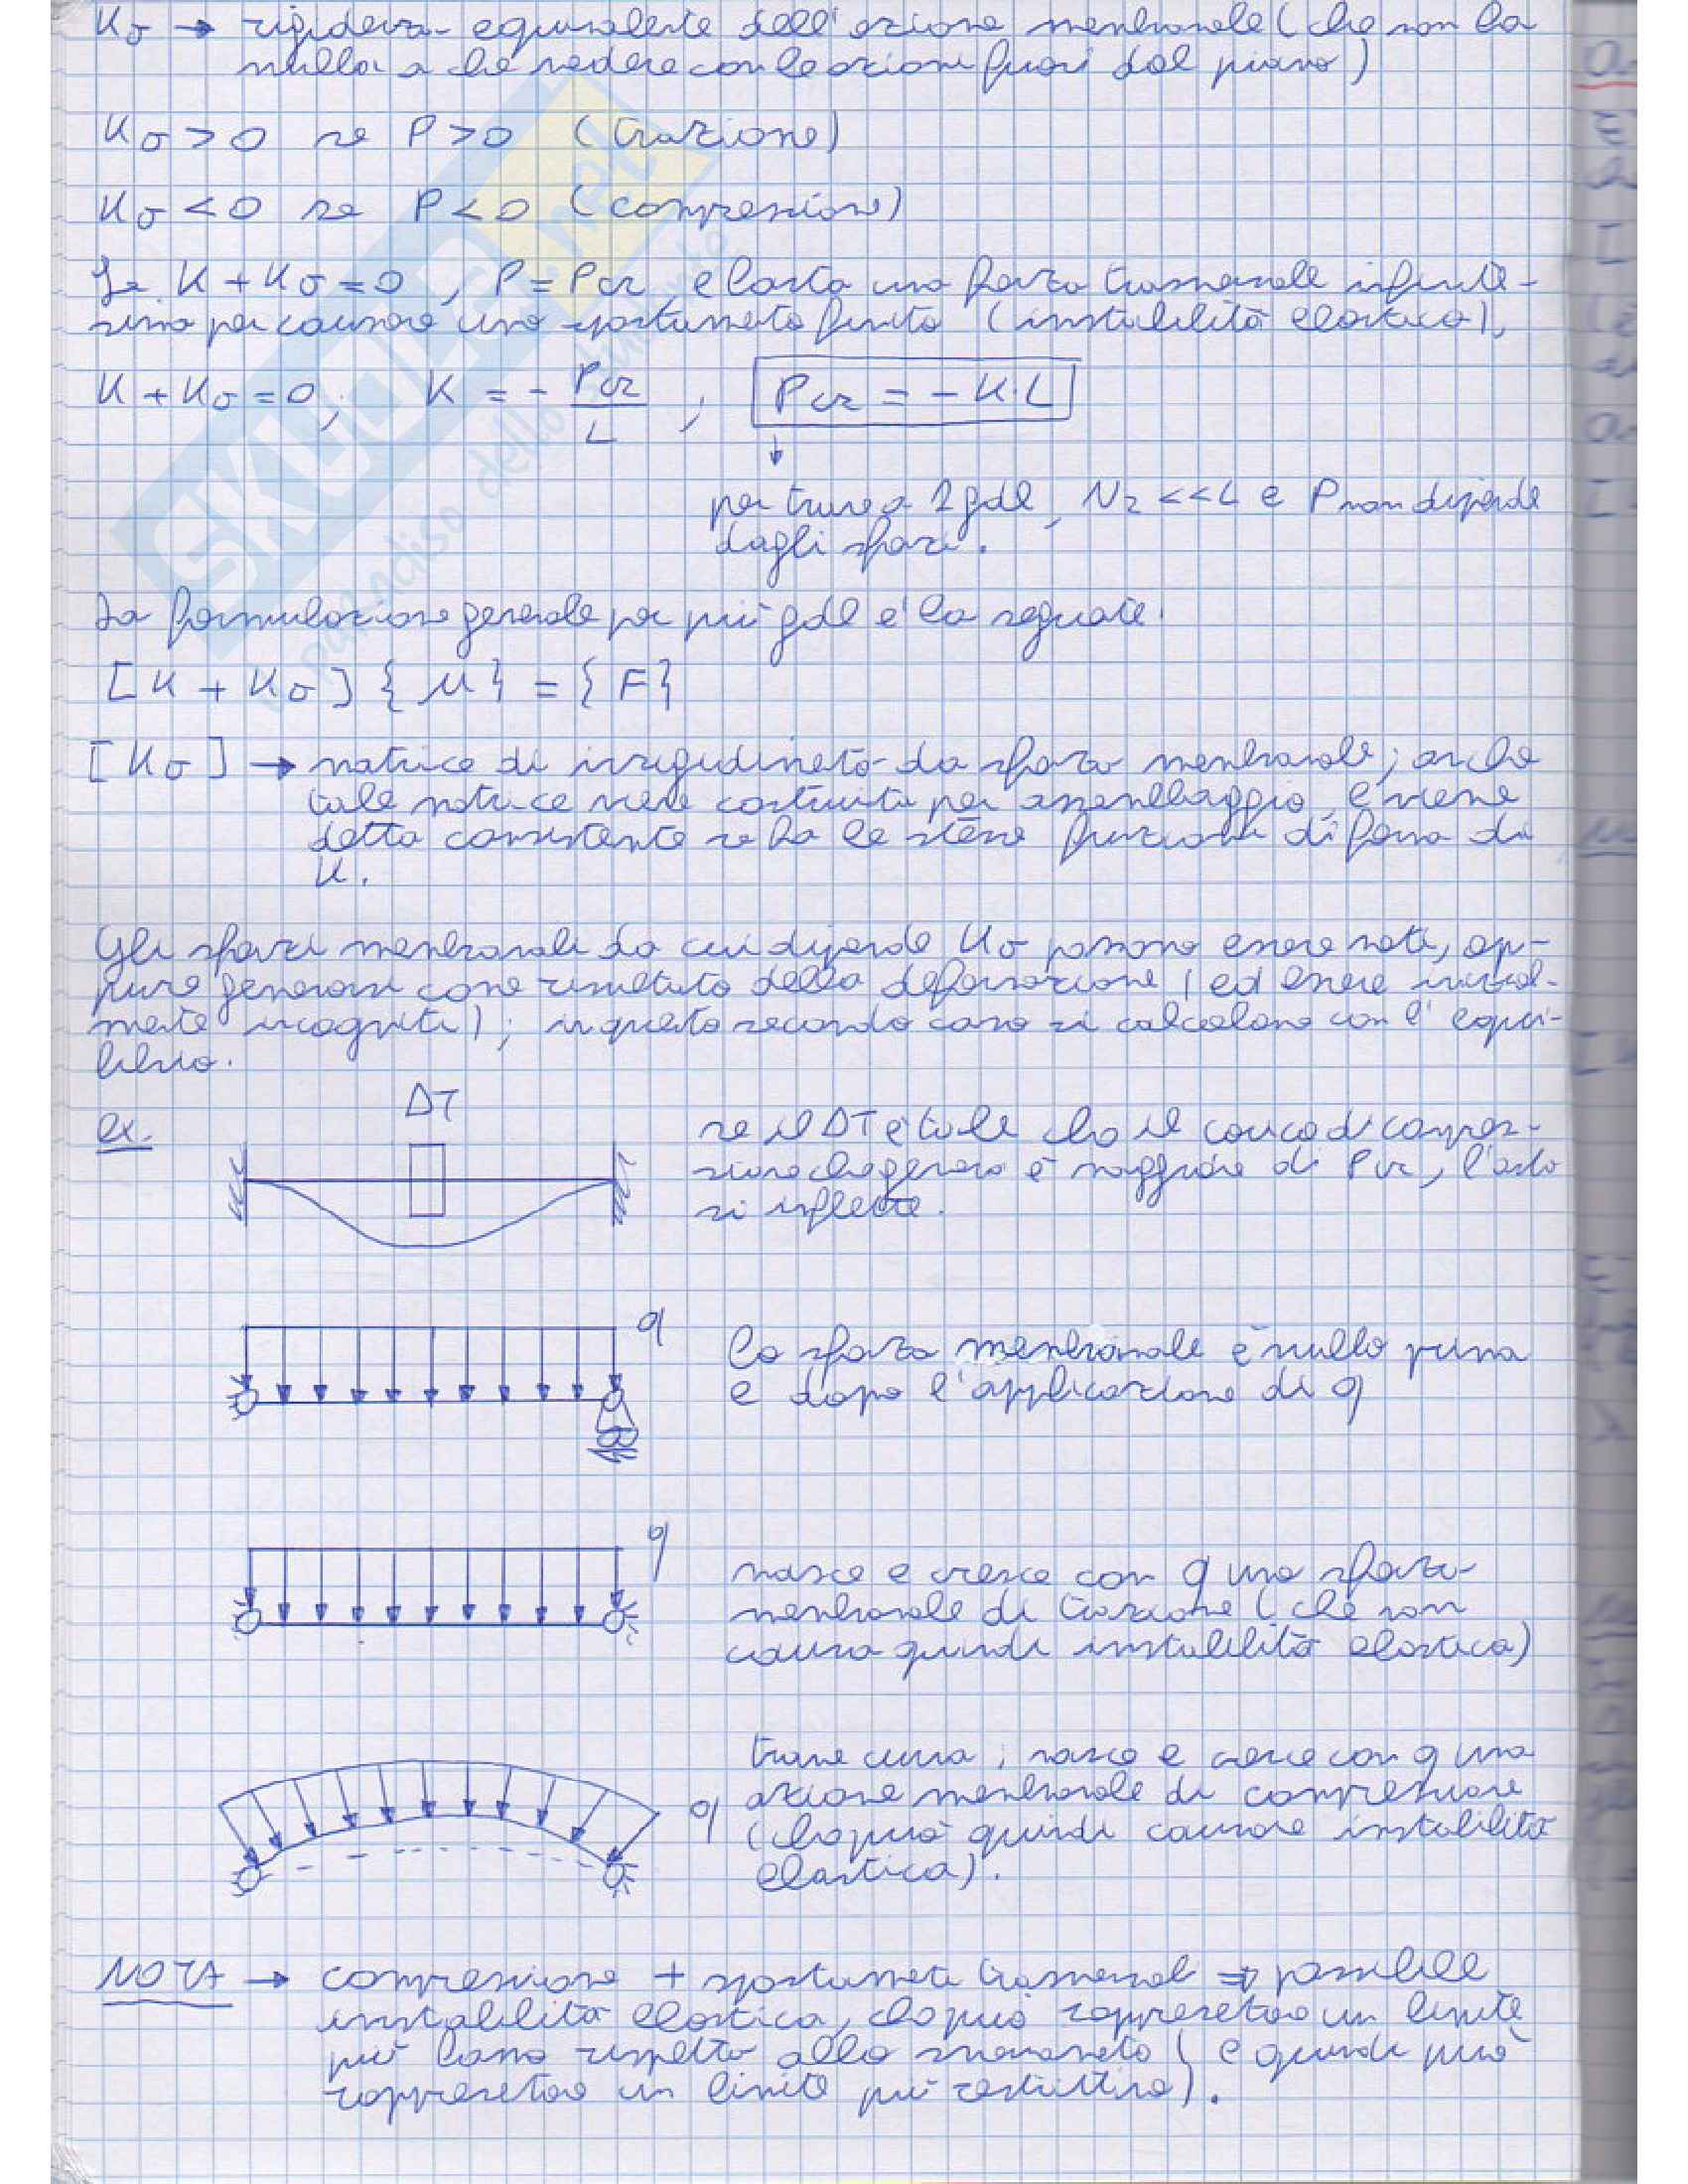 Kσ → rigidezza equivalente dell'azione membranale (che non ha
nulla a che vedere con le azioni fuori dal piano)
Kσ > 0 se P > 0 (trazione)
Kσ < 0 se P < 0 (compressione)
Se K + Kσ = 0, P = Pcr e basta una forza trasversale infinite-
sima per causare uno spostamento finito (instabilità elastica),
K + Kσ = 0; K = - Pcr/L ; Pcr = - K·L
↓
per trave a 1 gdl, N2 << L e P non dipende
dagli sforzi.
La formulazione generale per più gdl è la seguente:
[K + Kσ] {u} = {F}
[Kσ] → matrice di irrigidimento da sforzo membranale; anche
tale matrice viene costruita per assemblaggio, e viene
detta consistente se ha le stesse funzioni di forma di
K.
Gli sforzi membranali da cui dipende Kσ possono essere noti, op-
pure generarsi come risultato della deformazione (ed essere inizial-
mente incogniti); in questo secondo caso si calcolano con l'equi-
librio.
ex.
ΔT
se il ΔT è tale che il carico di compres-
sione che genera è maggiore di Pcr, l'asta
si inflette.
q
lo sforzo membranale è nullo prima
e dopo l'applicazione di q
q
nasce e cresce con q uno sforzo
membranale di trazione (che non
causa quindi instabilità elastica)
q
trave curva; nasce e cresce con q una
azione membranale di compressione
(che può quindi causare instabilità
elastica).
NOTA → compressione + spostamenti trasversali ⇒ possibile
instabilità elastica, che può rappresentare un limite
più basso rispetto allo snervamento (e quindi può
rappresentare un limite più restrittivo).
SKUOLA.net
paradiso dello studente